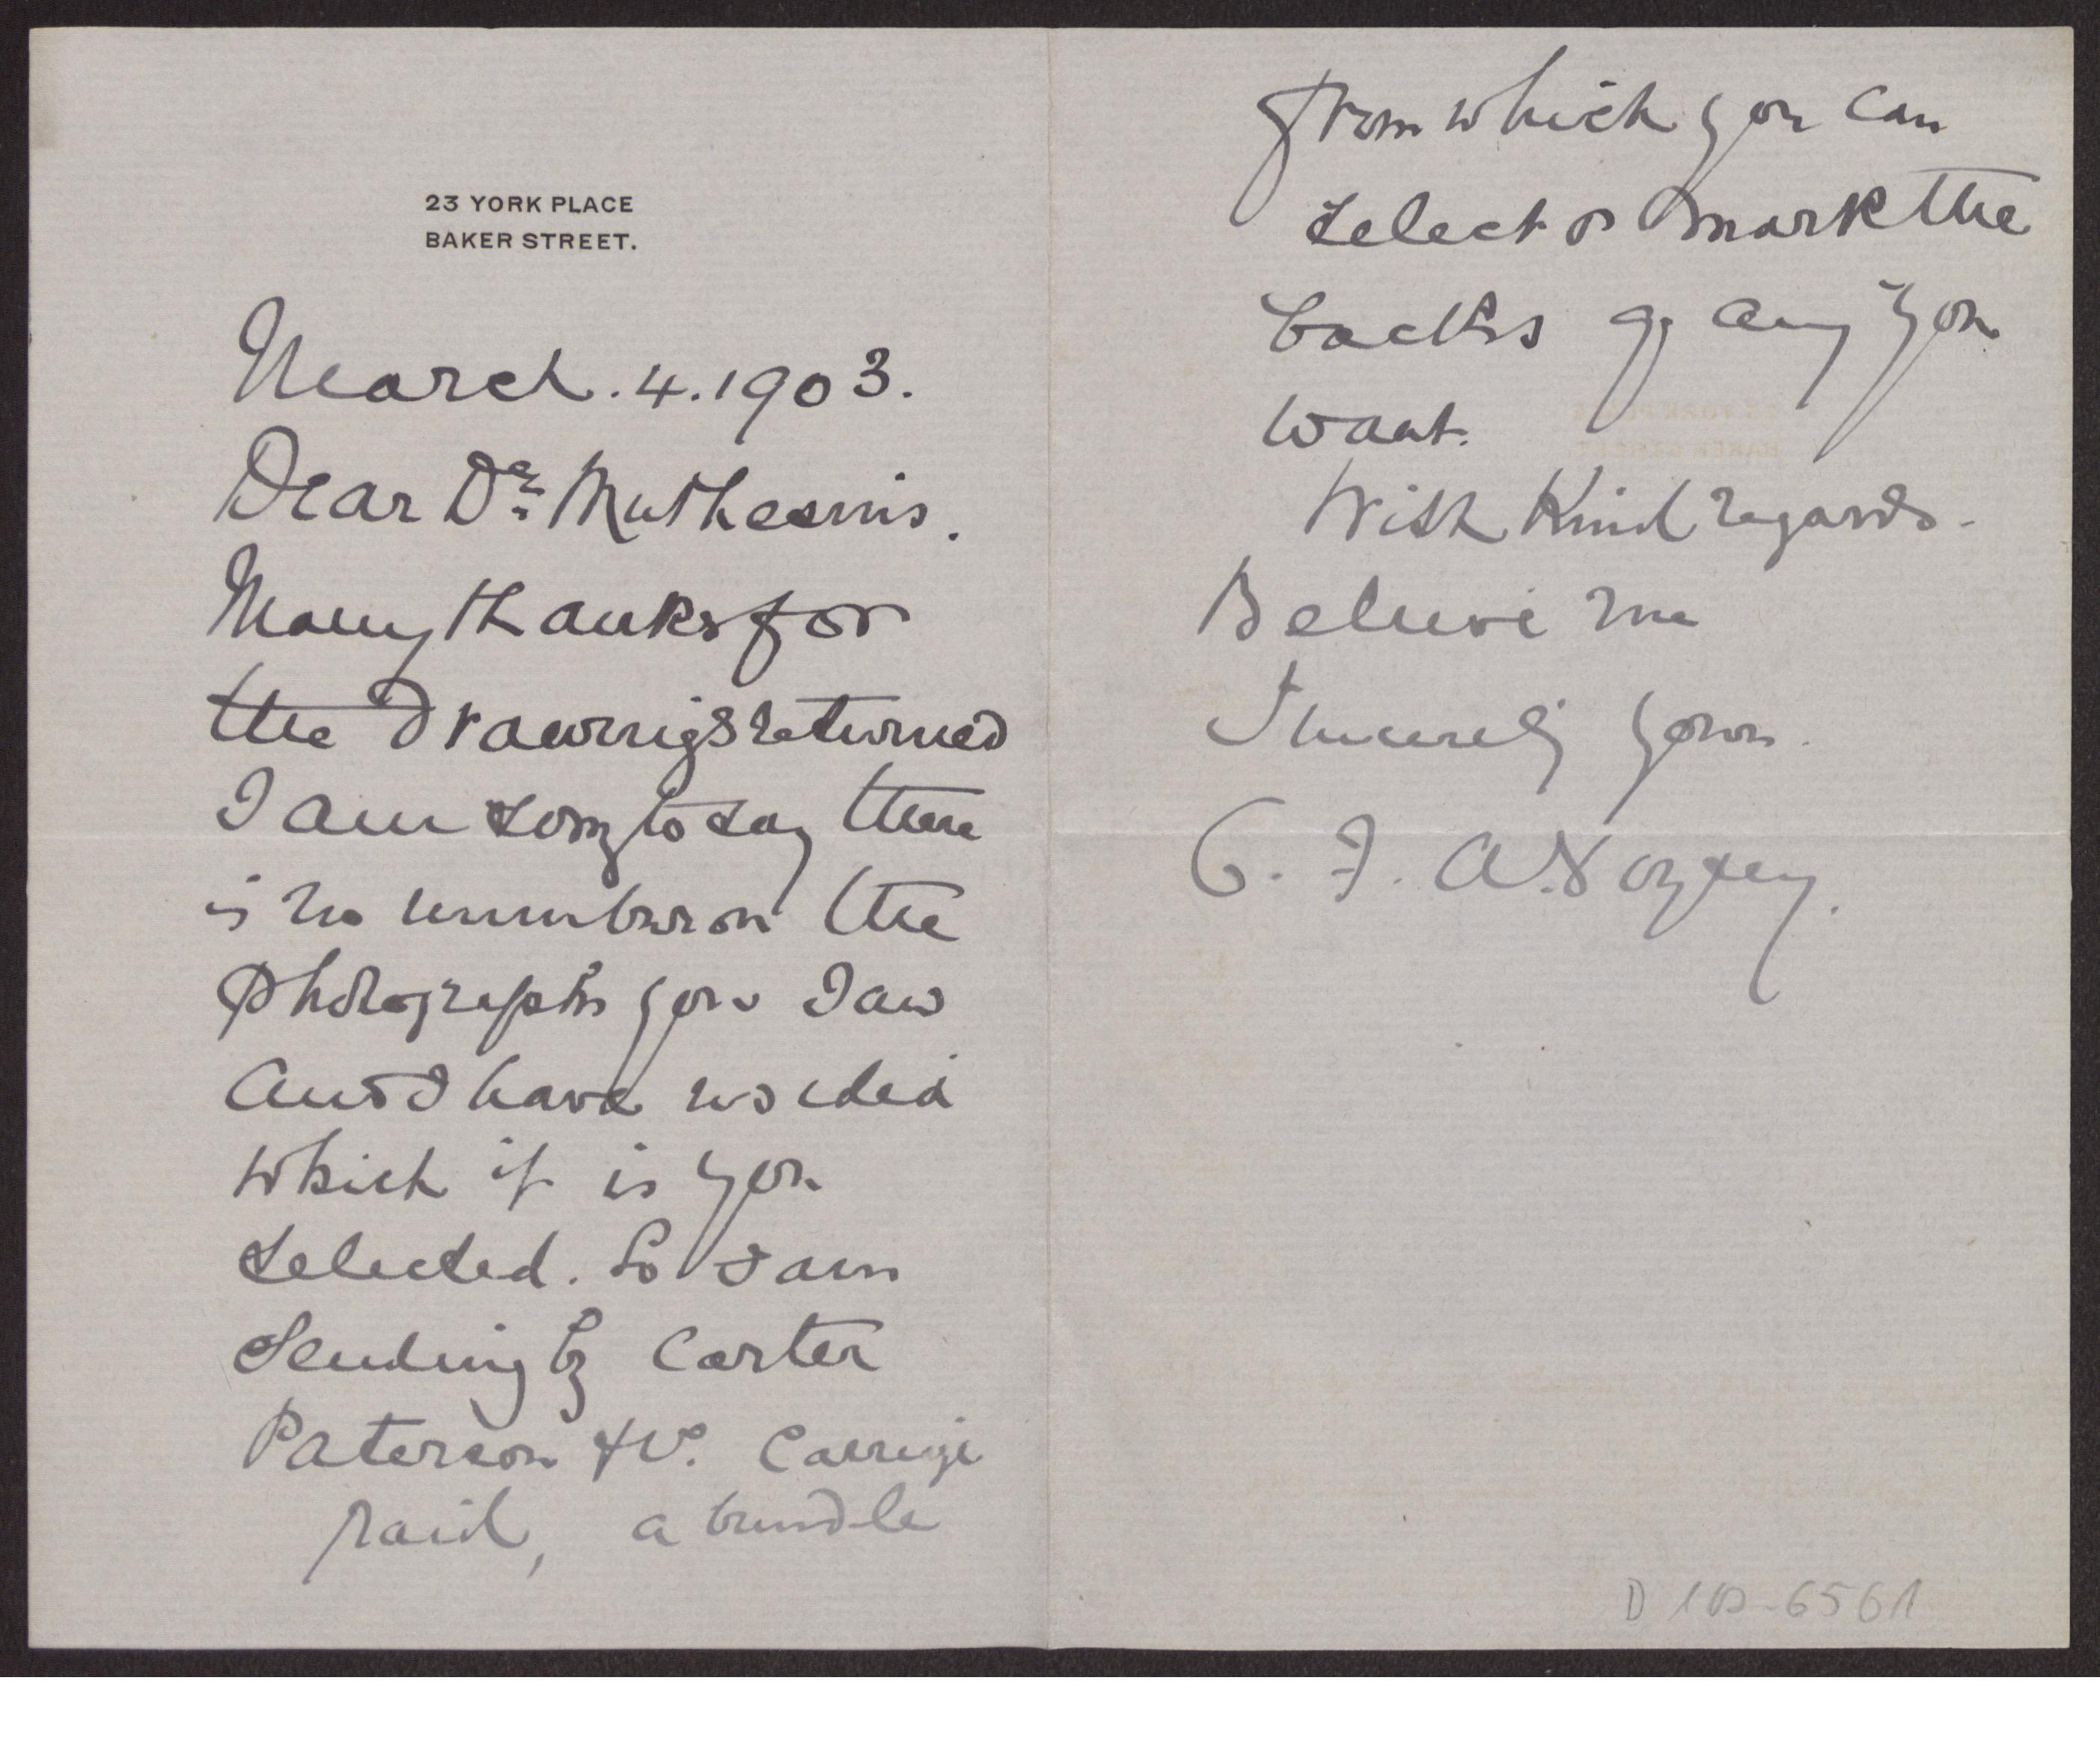 23 YORK PLACE
BAKER STREET.
March. 4. 1903.
Dear Dr. Muthesius.
Many thanks for
the Drawings returned
I am sorry to say there
is no number on the
photographs you saw
and I have no idea
which it is you
selected. So I am
sending by Carter
Paterson & Co. Carriage
paid, a bundle
from which you can
select or mark the
backs of any you
want.
With Kind regards.
Believe me
Sincerely yours.
C. F. A. Voysey.
D 102-6561